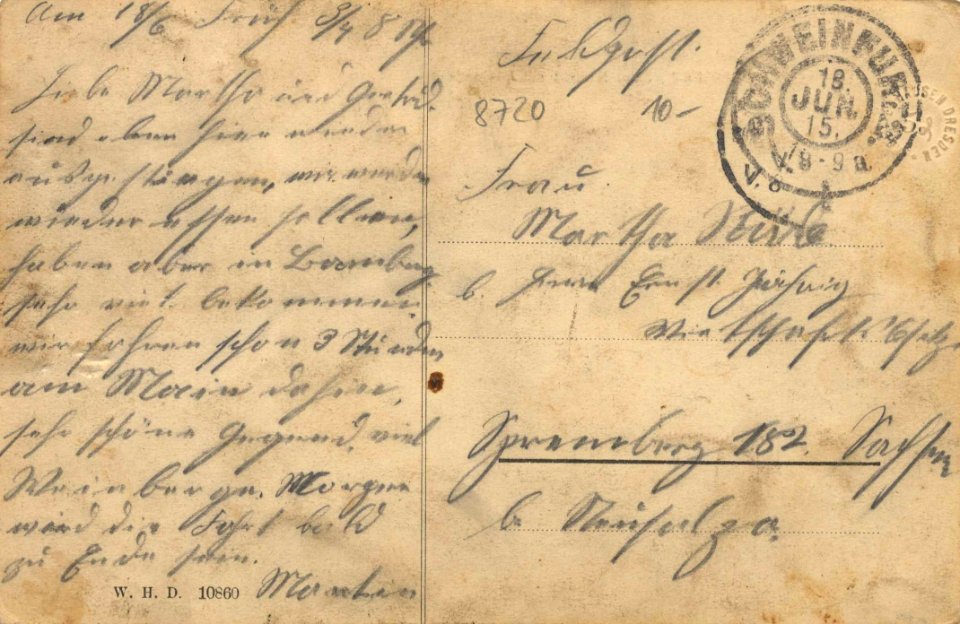 Am 18/6 Früh 3/4 8 Uhr
Liebe Martha und Gertrud.
sind eben hier wieder
ausgestiegen, wir werden
wieder essen sollen,
haben aber in Bamberg
sehr viel bekommen.
wir fahren schon 3 Stunden
am Main dahin,
sehr schöne Gegend, viel
Weinberge. Morgen
wird die Fahrt bald
zu Ende sein.
Martin
W. H. D. 10860
Feldpost.
8720 10-
SCHWEINFURT
18.
JUN.
15.
V. 8-9 a.
Frau
Martha
b. Herrn Ernst
Wirtschafts
Spremberg 182. Sachsen
b. Neusalza.